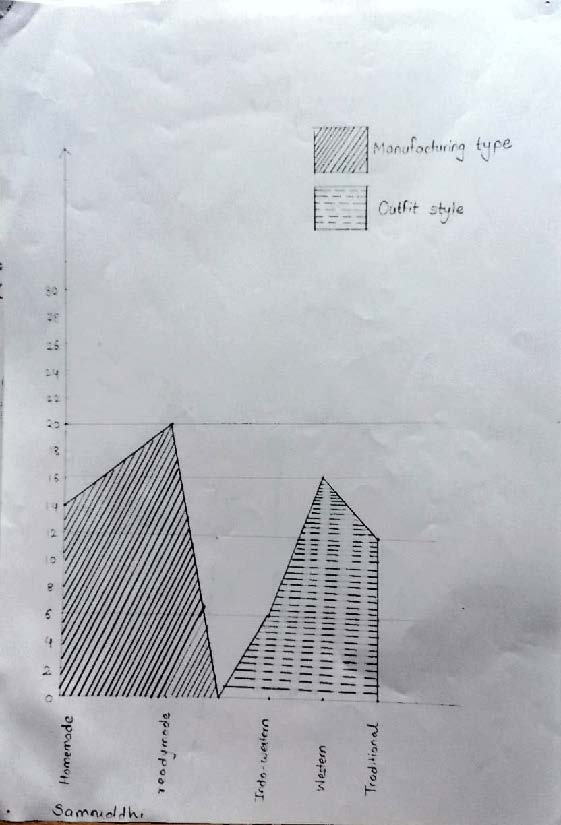 Manufacturing type
Outfit style
30
28
26
24
22
20
18
16
14
12
10
8
6
4
2
0
Homemade
readymade
Indo-western
Western
Traditional
Samruddhi